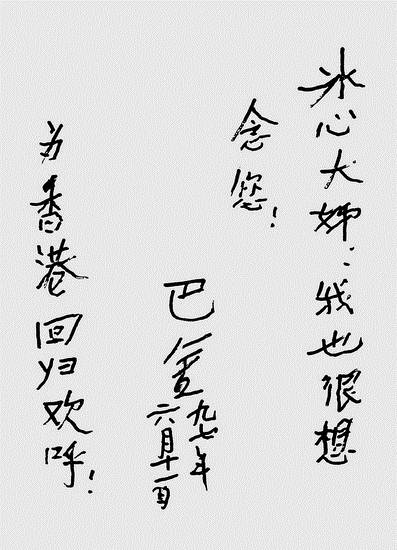 冰心大姊：我也很想
念您！
巴金
九七年
六月十一日
为香港回归欢呼！